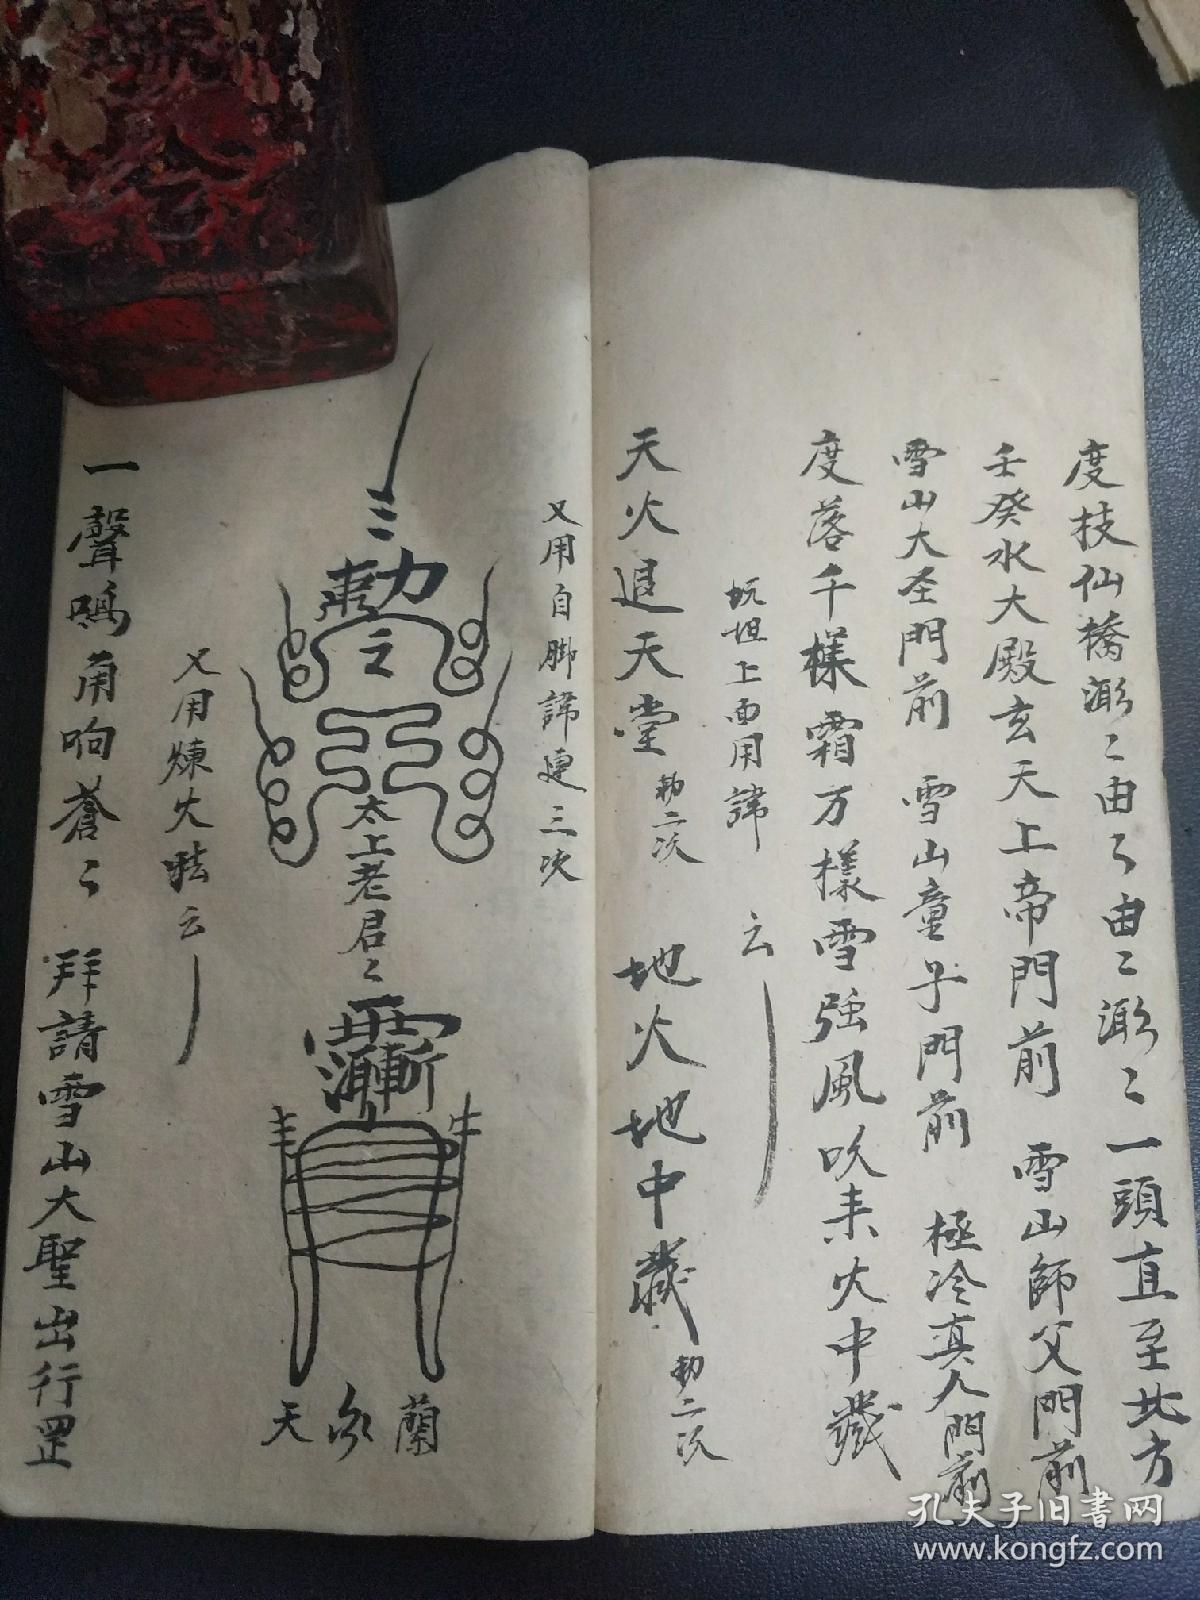 度枝仙橋漸〻由〻由〻漸〻一頭直至北方
壬癸水大殿玄天上帝門前 雪山師父門前
雪山大圣門前 雪山童子門前 極冷真人門前
度落千樣霜万樣雪強風吹来火中藏
坛坦上面用諱 云
天火退天堂 勅二次 地火地中藏 勅二次
又用自脚諱連三次
勅
太上老君〻
天 蘭
又用煉火 云
一聲鳴角响蒼〻 拜請雪山大聖出行罡
孔夫子旧书网
www.kongfz.com